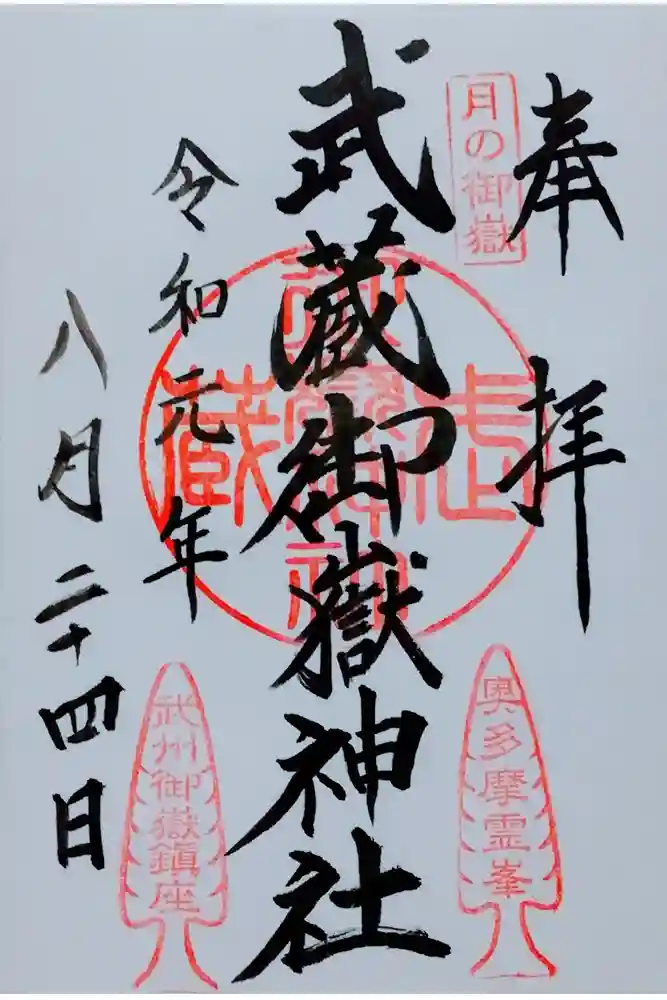 奉拝
月の御嶽
武蔵御嶽神社
令和元年
八月二十四日
奥多摩霊峯
武州御嶽鎮座